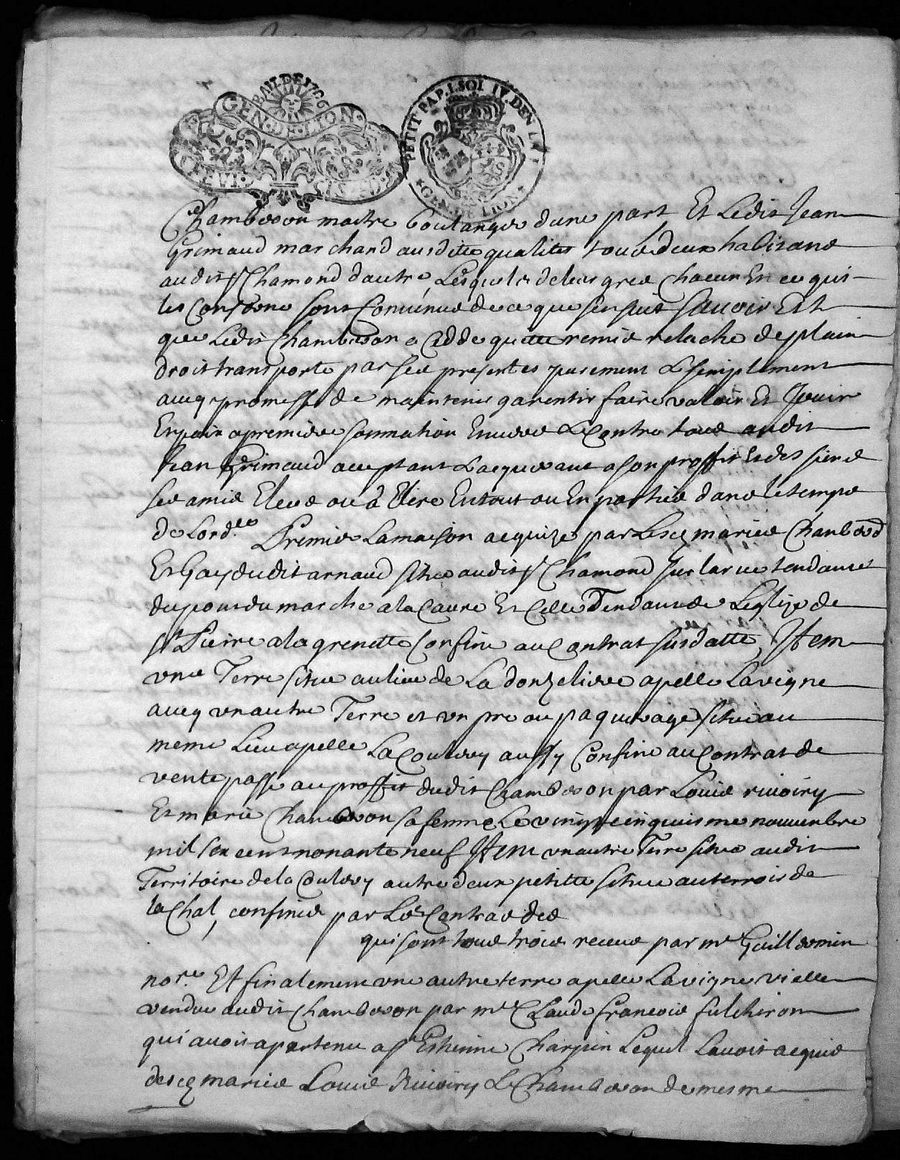 BAIL DE 1706
GEN. DE LION
PETIT PAP. 1 SOL IV DEN. LA
GEN. DE LION
Chambeson maitre boulanger dune part Et Ledit Jean
Grimaud marchand ausdites qualites tous deux habitans
audit st Chamond dautre Lesquels de leur gre Chacun En ce qui
les Conserne sont Convenus de ce que sensuit Savoir Est
que Ledit Chambeson a Cedde quitte remis relache de plain
droit transporte par ses presentes purement et simplement
avecq promesse de maintenir garentir faire valoir Et Jouir
En paix a premiere sommation Envers et Contre tous audit
Jean Grimaud acceptant Lacquerant a son proffit Et des siens
ses amis Eleus ou a Elire En tout ou En partie dans le temps
de Lordce Premier La maison acquize par Lesq maries Chanbe
Et Gay dudit arnaud sitée audit st Chamond sur la rue tendante
du pont du marche a la Caure Et Celle Tendante de Leglize de
st Pierre a la grenette Confine au Contrat susdatte, Item
une Terre situe au lieu de La donzeliere apelle La vigne
avecq un autre Terre et un pre ou paquerage situe au
meme Lieu apelle La Coulouy aussy Confine au Contrat de
vente passe au proffit dudit Chambeson par Louis rivoiry
Et marie Chambeson sa femme Le vingt cinquisme nouvenbre
mil six cent nonante neuf Item un autre Terre situe audit
Territoire de la Coulouy autre deux petitte situe au terrois de
la Chal, confines par Les Contras des
qui sont tous trois receus par me Guillemin
nore Et finalement une autre terre apelle La vigne vielle
vendue audit Chambeson par me Claude francois fulchiron
qui avoit apartenu a sr Estienne Charpin Lequel Lavoit acquis
desq maries Louis Rivoiry et Chambeson de mesme